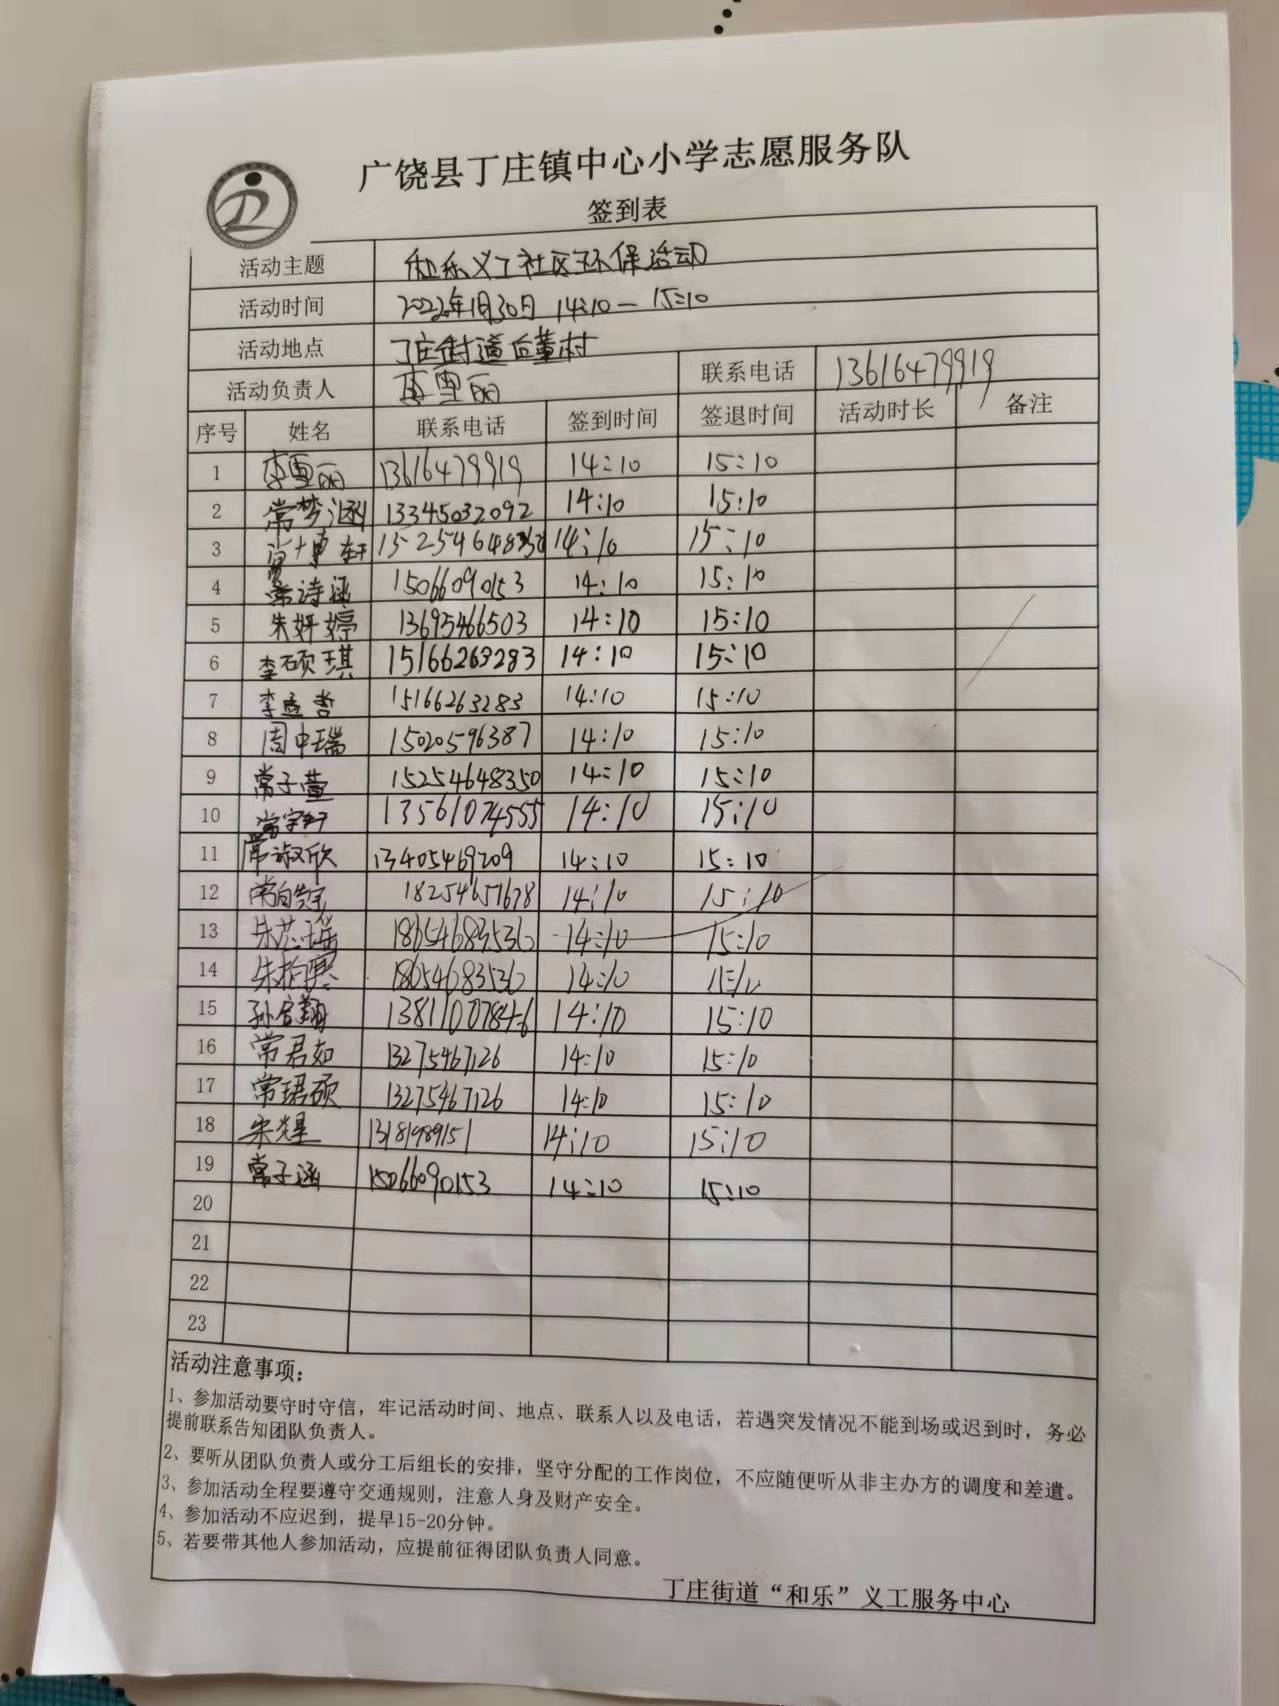 广饶县丁庄镇中心小学志愿服务队
签到表
活动主题 和乐义工社区环保活动
活动时间 2022年1月30日 14:10—15:10
活动地点 丁庄街道后董村
活动负责人 李雪丽 联系电话 13616479919
序号 姓名 联系电话 签到时间 签退时间 活动时长 备注
1 李雪丽 13616479919 14:10 15:10
2 常梦涵 13345032092 14:10 15:10
3 14:10 15:10
4 常诗涵 15066090153 14:10 15:10
5 朱妍婷 13695466503 14:10 15:10
6 李硕琪 15166263283 14:10 15:10
7 李孟哲 15166263283 14:10 15:10
8 周中瑞 15020596387 14:10 15:10
9 常子萱 15254648350 14:10 15:10
10 常宇轩 13561074555 14:10 15:10
11 常淑欣 13405469209 14:10 15:10
12 18254651678 14:10 15:10
13 朱芯瑶 14:10 15:10
14 18654683536 14:10 15:10
15 13811007846 14:10 15:10
16 常君如 13275467126 14:10 15:10
17 常珺硕 13275467126 14:10 15:10
18 13181989151 14:10 15:10
19 常子涵 15066090153 14:10 15:10
20
21
22
23
活动注意事项：
1、参加活动要守时守信，牢记活动时间、地点、联系人以及电话，若遇突发情况不能到场或迟到时，务必
提前联系告知团队负责人。
2、要听从团队负责人或分工后组长的安排，坚守分配的工作岗位，不应随便听从非主办方的调度和差遣。
3、参加活动全程要遵守交通规则，注意人身及财产安全。
4、参加活动不应迟到，提早15-20分钟。
5、若要带其他人参加活动，应提前征得团队负责人同意。
丁庄街道“和乐”义工服务中心